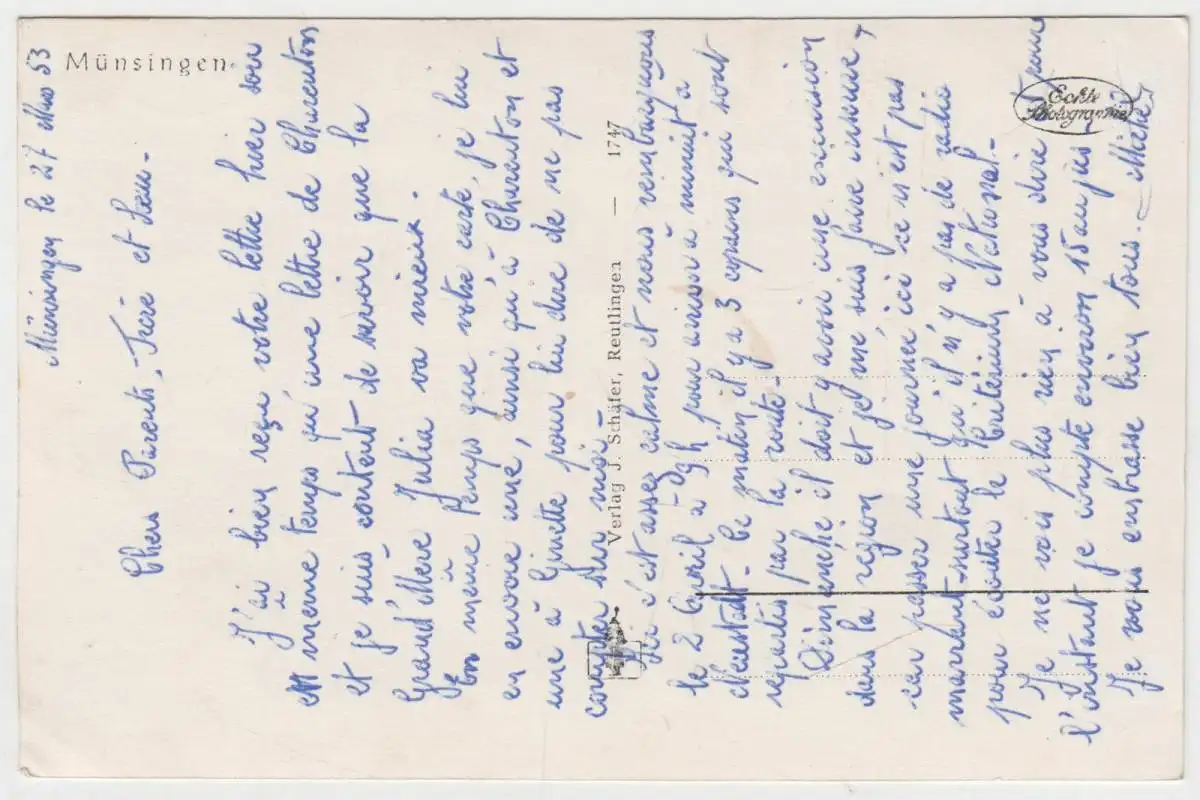 Münsingen
Münsingen le 27 Mars 53
Chers Parents, Frère et Sœur.
J'ai bien reçu votre lettre hier soir
en meme temps qu'une lettre de Charenton
et je suis content de savoir que la
Grand'Mère Julia va mieux.
En même temps que votre carte, je lui
en envoie une, ainsi qu'à Charenton et
une à Ginette pour lui dire de ne pas
compter sur moi.
Ici c'est assez calme et nous rembarquons
le 2 Avril a 9h pour arriver à minuit à
Neustadt. Ce matin il y a 3 qui sont
repartis par la route.
Dimanche il doit y avoir une excursion
dans la region et je me suis faire inscrire,
car passer une journée ici ce n'est pas
marrant surtout qu'il n'y a pas de radio
pour écouter le Critérium National.
Je ne vois plus rien à vous dire pour
l'instant je compte environ 15 aujus
Je vous embrasse bien tous. Michel
Verlag J. Schäfer, Reutlingen — 1747
Echte
Photographie